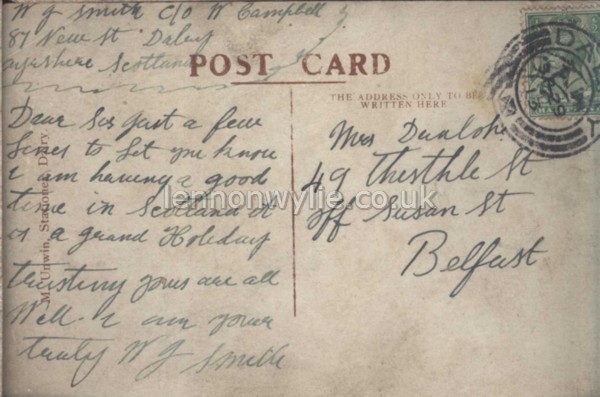 W J Smith C/O W Campbell
87 New St Dalry
Ayrshire Scotland
POST CARD
THE ADDRESS ONLY TO BE
WRITTEN HERE
Dear Sis Just a few
lines to let you know
I am having a good
time in Scotland it
is a grand Holeday
trusting yous are all
Well. I am your
truly W J Smith
Mrs Dunlop
49 Thesthle St
off Susan St
Belfast
M. Unwin, Stationer, Dalry.
lennonwylie.co.uk
DAL